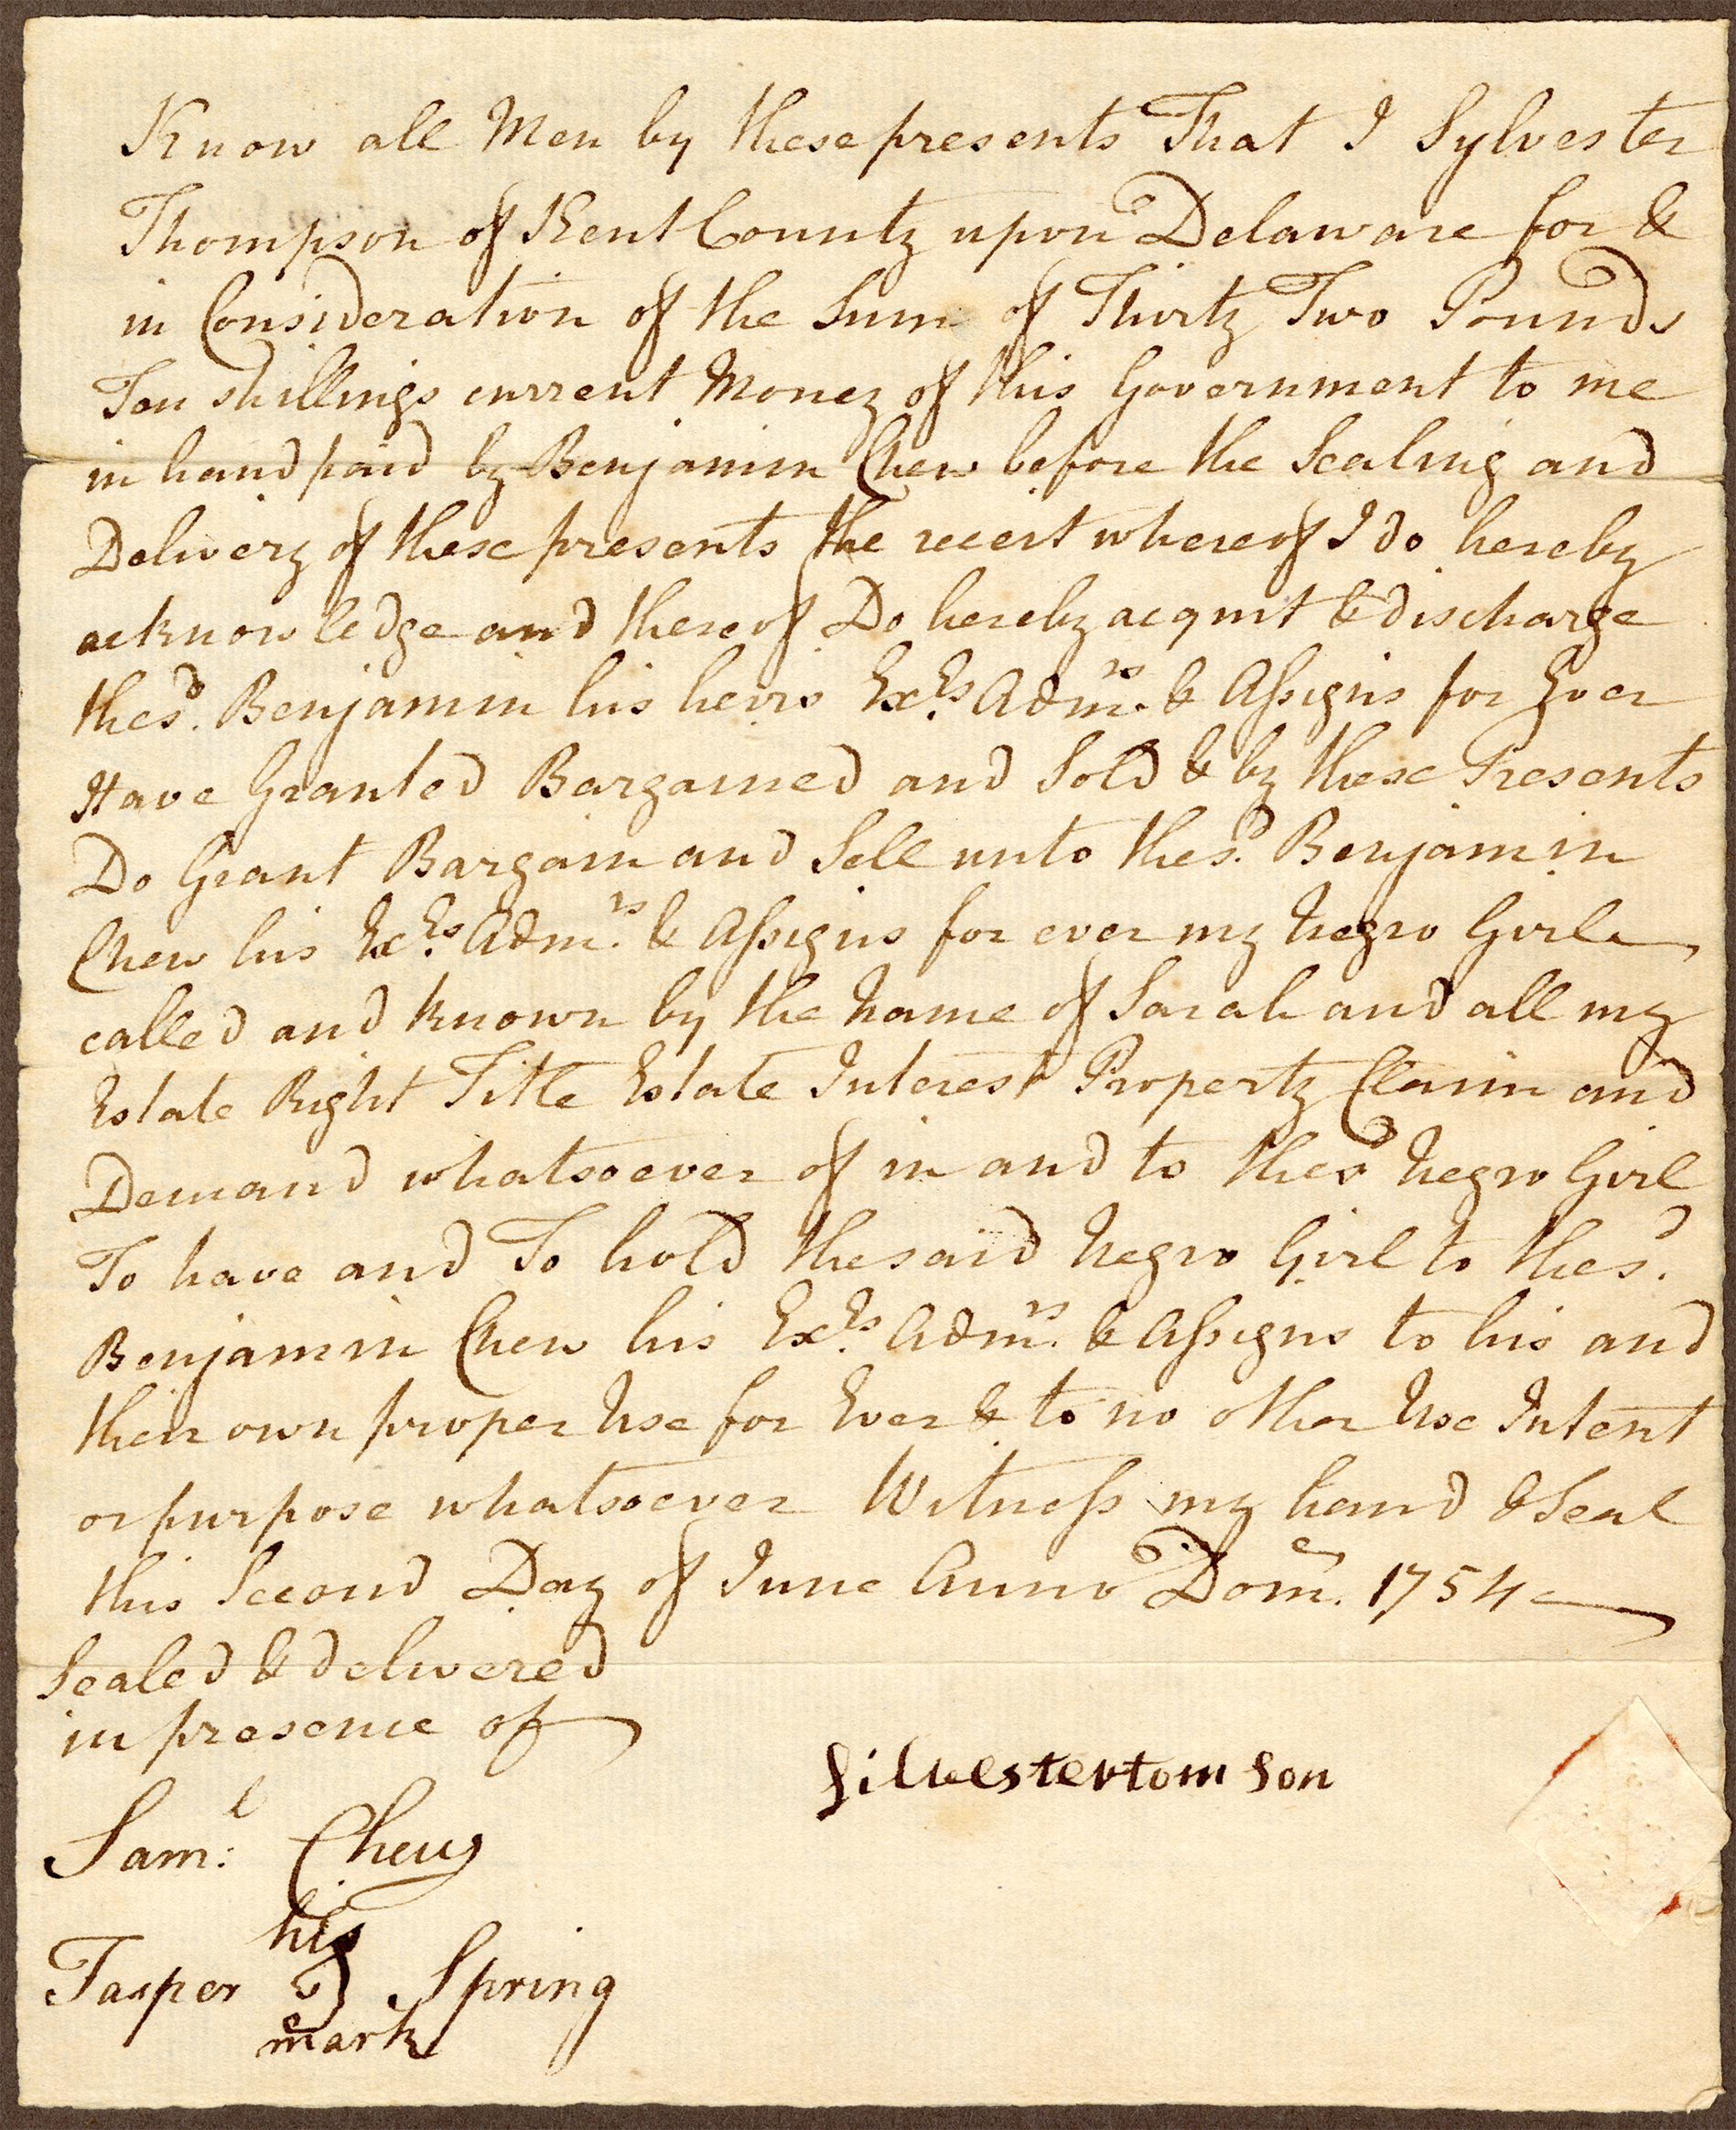 Know all Men by these presents That I Sylvester
Thompson of Kent County upon Delaware for &
in Consideration of the Sum of Thirty Two Pounds
Ten shillings current Money of this Government to me
in hand paid by Benjamin Chew before the Sealing and
Delivery of these presents the receit whereof I do hereby
acknowledge and thereof Do hereby acquit & discharge
the sd. Benjamin his heirs Exrs. Admrs. & Assigns for Ever
Have Granted Bargained and Sold & by these Presents
Do Grant Bargain and Sell unto the sd. Benjamin
Chew his Exrs. Admrs. & Assigns for ever my Negro Girl
called and known by the Name of Sarah and all my
Estate Right Title Estate Interest Property Claim and
Demand whatsoever of in and to the sd Negro Girl
To have and To hold the said Negro Girl to the sd.
Benjamin Chew his Exrs. Admrs. & Assigns to his and
their own proper Use for Ever & to no other Use Intent
or purpose whatsoever Witness my hand & Seal
this Second Day of June Anno Dom. 1754
Sealed & delivered
in presence of
Silvester tomson
Saml: Chew
his
Jasper Spring
mark